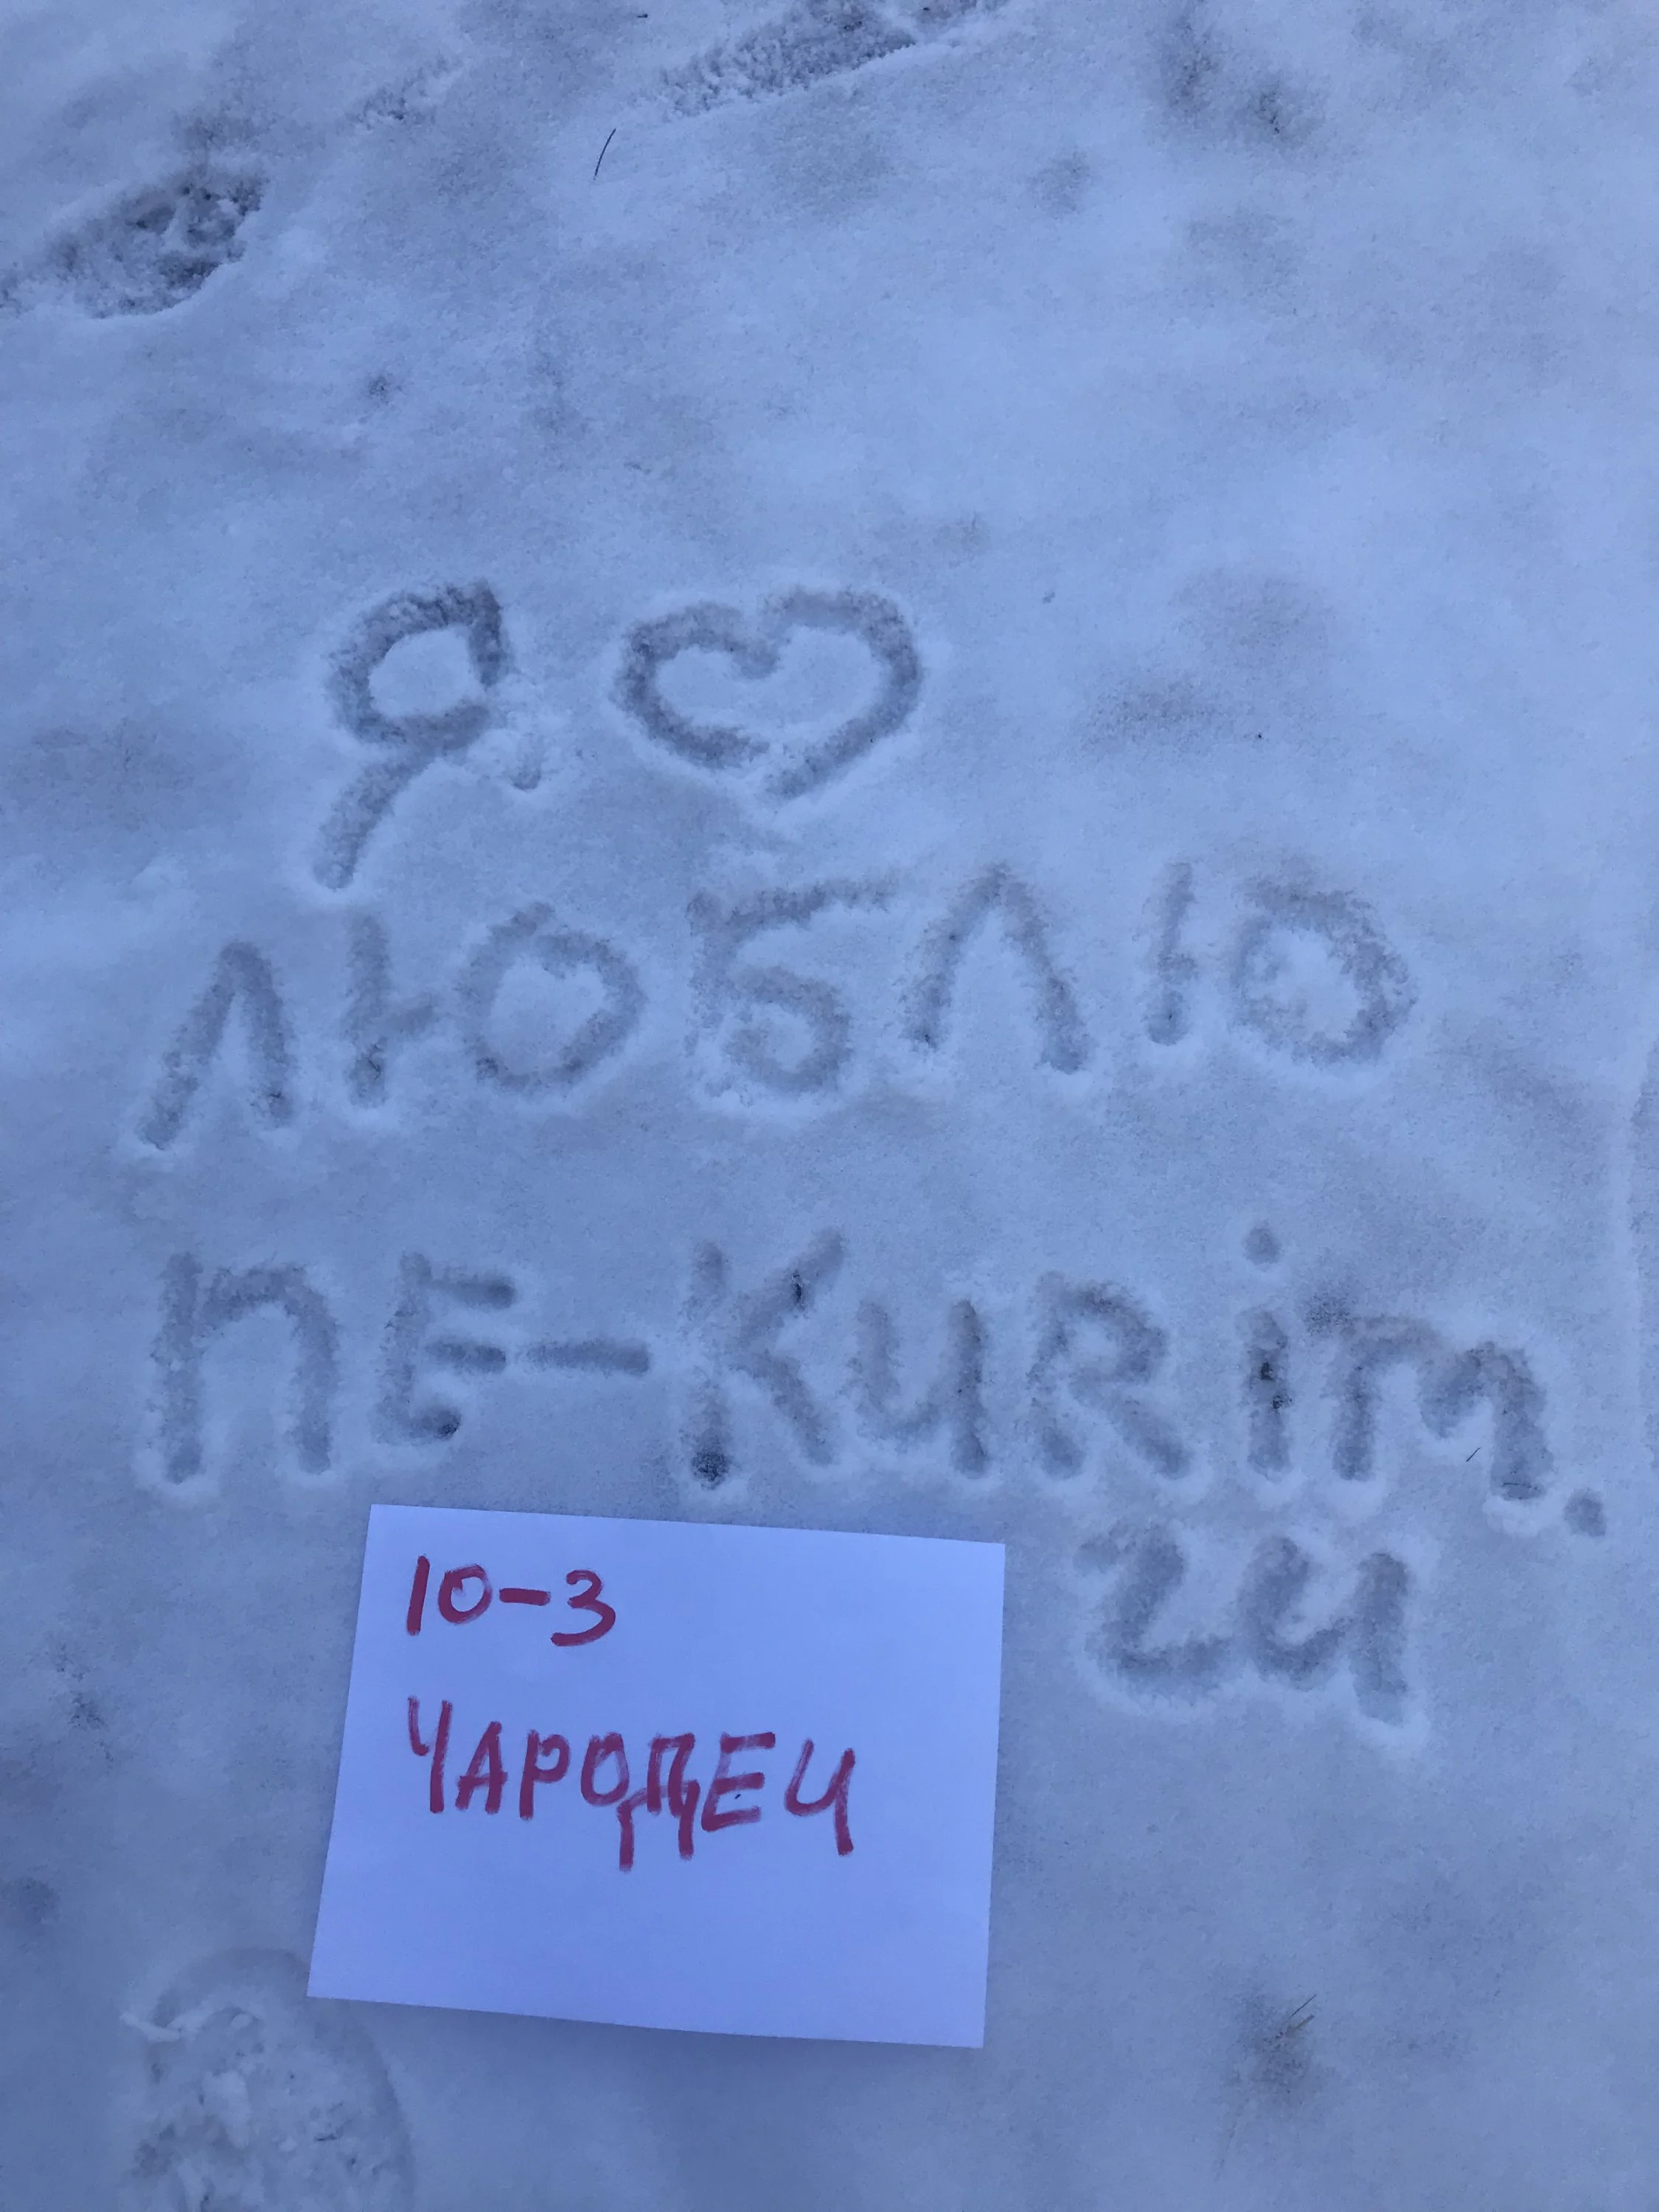 Я ♡
ЛЮБЛЮ
ПЕ-KURim.
24
10-3
ЧАРОДЕЙ